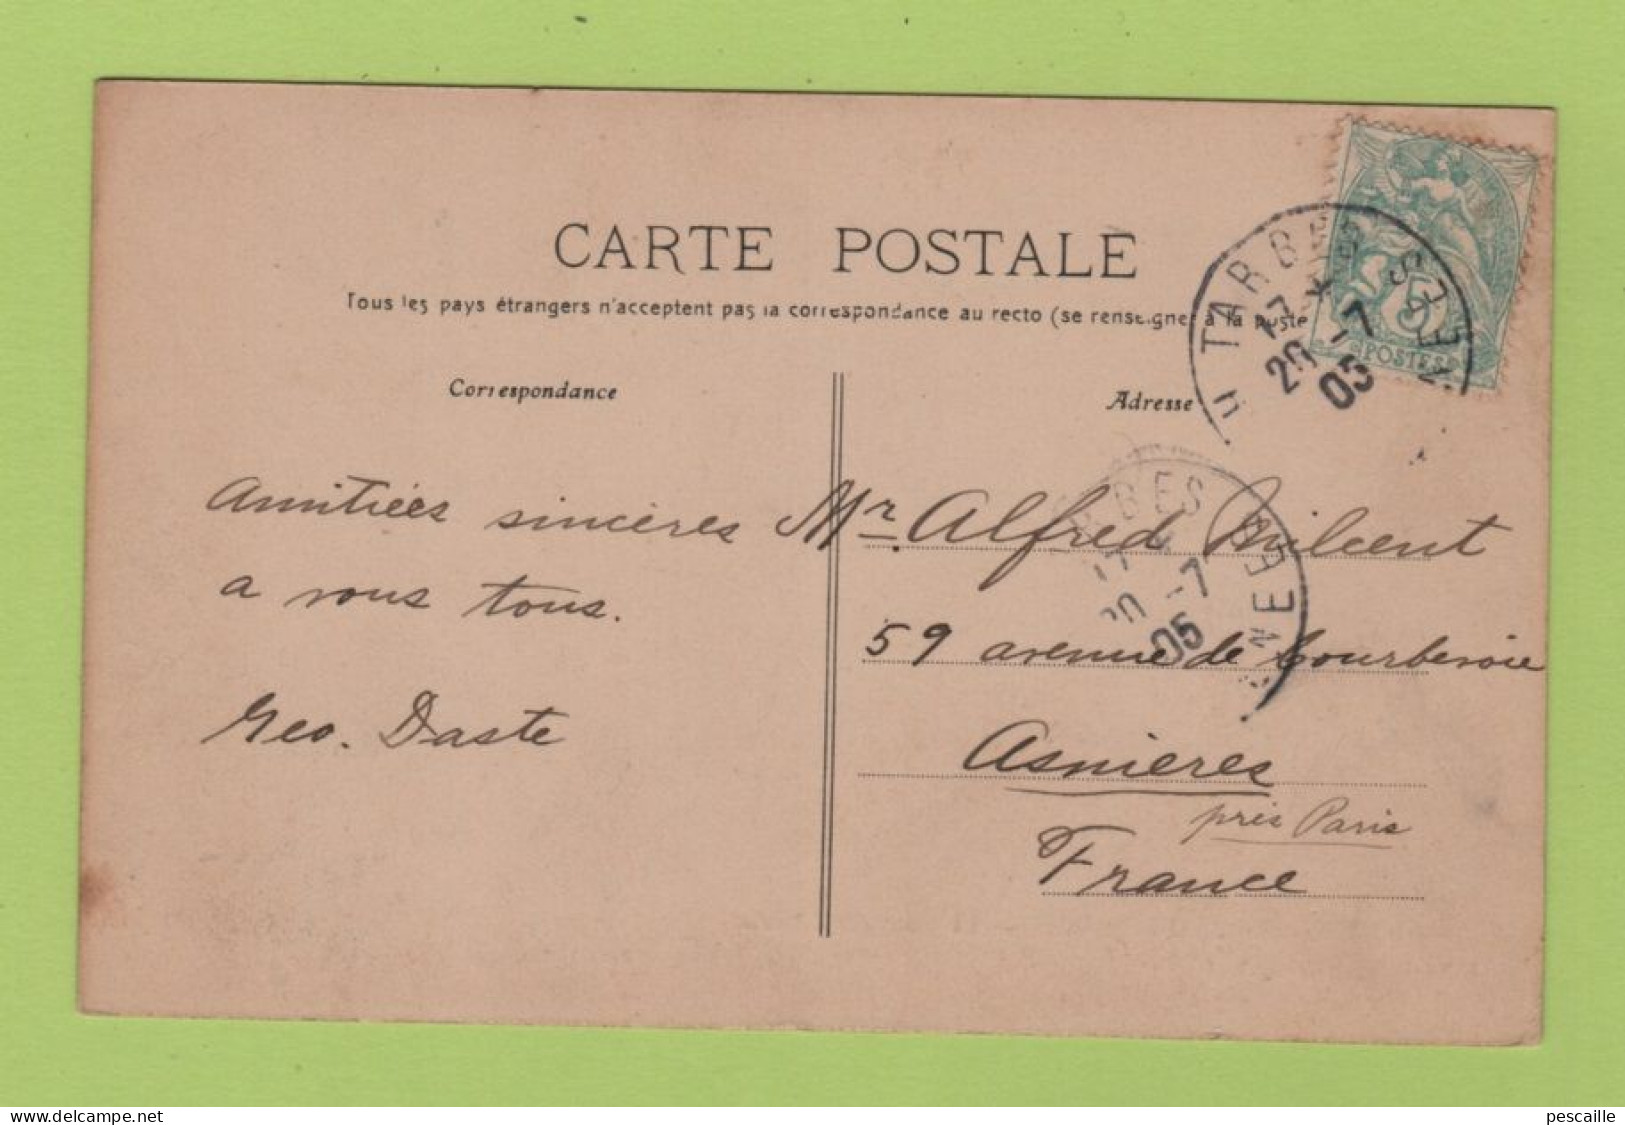 CARTE POSTALE
Tous les pays étrangers n'acceptent pas la correspondance au recto (se renseigner à la poste
Correspondance
Adresse
Amitiées sincères
a vous tous.
Geo. Daste
Mr. Alfred Milcent
59 avenue de Courbevoie
Asnieres
près Paris
France
5
POSTES
TARBES
17
20 -7
05
BES
17
20 -7
05
www.delcampe.net
pescaille